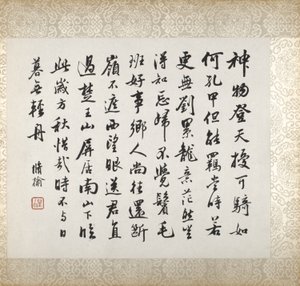 神物登天擾可騎如
何孔甲但能羈當時若
更無劉累龍意茫然豈
得知忘歸不覺鬢毛
班好事鄉人尚往還斷
嶺不遮西望眼送君直
過楚王山屏居南山下臨
此歲方秋惜哉時不與日
暮無輕舟